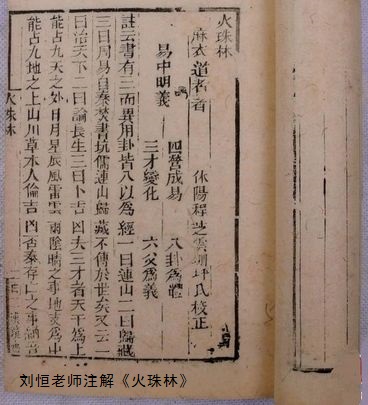 火珠林
麻衣道者著 休陽程芝雲朗坪氏校正
易中明義 四營成易 八卦為體
三才變化 六爻為義
註云書有三而異用卦皆八以為經一曰連山二曰歸藏
三曰周易自秦焚書坑儒連山歸藏不傳於世矣又云一
曰治天下二曰論長生三曰卜吉凶夫三才者天為上
能占九天之外日月星辰風雷雲雨陰晴之事地支為中
能占九地之上山川草木人倫吉凶否泰存亡之事納音
火珠林
刘恒老师注解《火珠林》